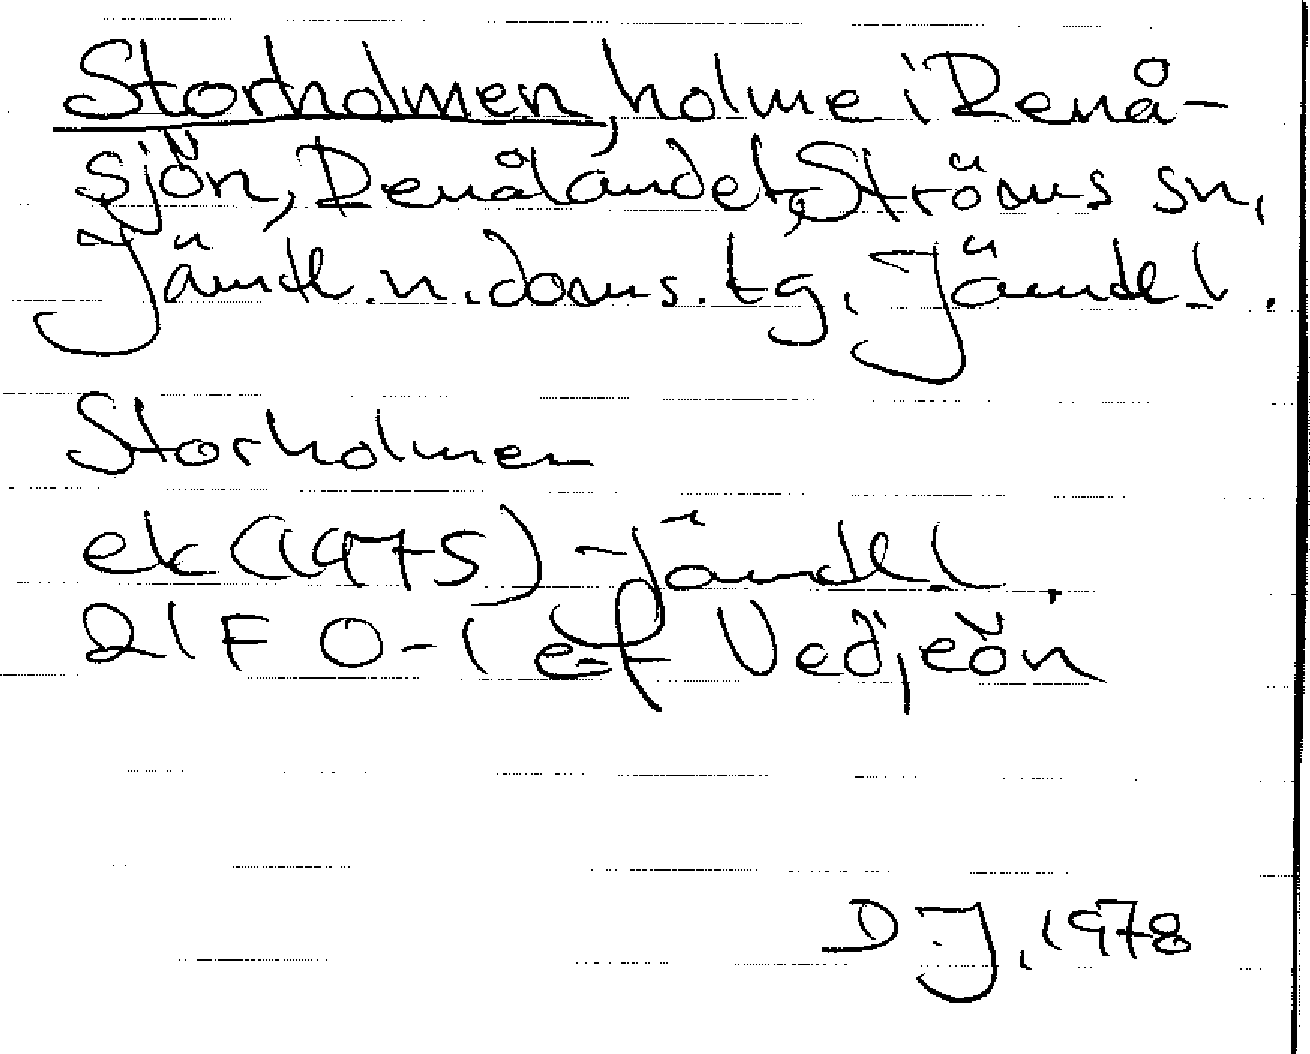 Storholmen, holme i Renå-
sjön, Renålandet, Ströms sn,
Jämtl. n. doms. tg, Jämtl. l.
Storholmen
ek (1975) - Jämtl. l.
21F 0-1 e-f Vedjeön
DJ, 1978